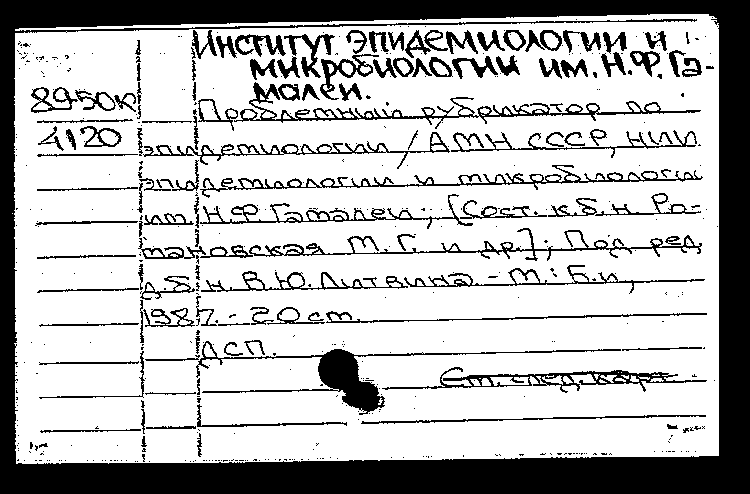 Институт эпидемиологии и
микробиологии им. Н.Ф. Га-
малеи.
89-50К
4120
Проблемный рубрикатор по
эпидемиологии / АМН СССР, НИИ
эпидемиологии и микробиологии
им. Н.Ф. Гамалеи; [Сост. к.б.н. Ро-
мановская М.Г. и др.]; Под ред.
д.б.н. В.Ю. Литвина. - М.: Б.и,
1987. - 20 см.
ДСП.
См. след. карт